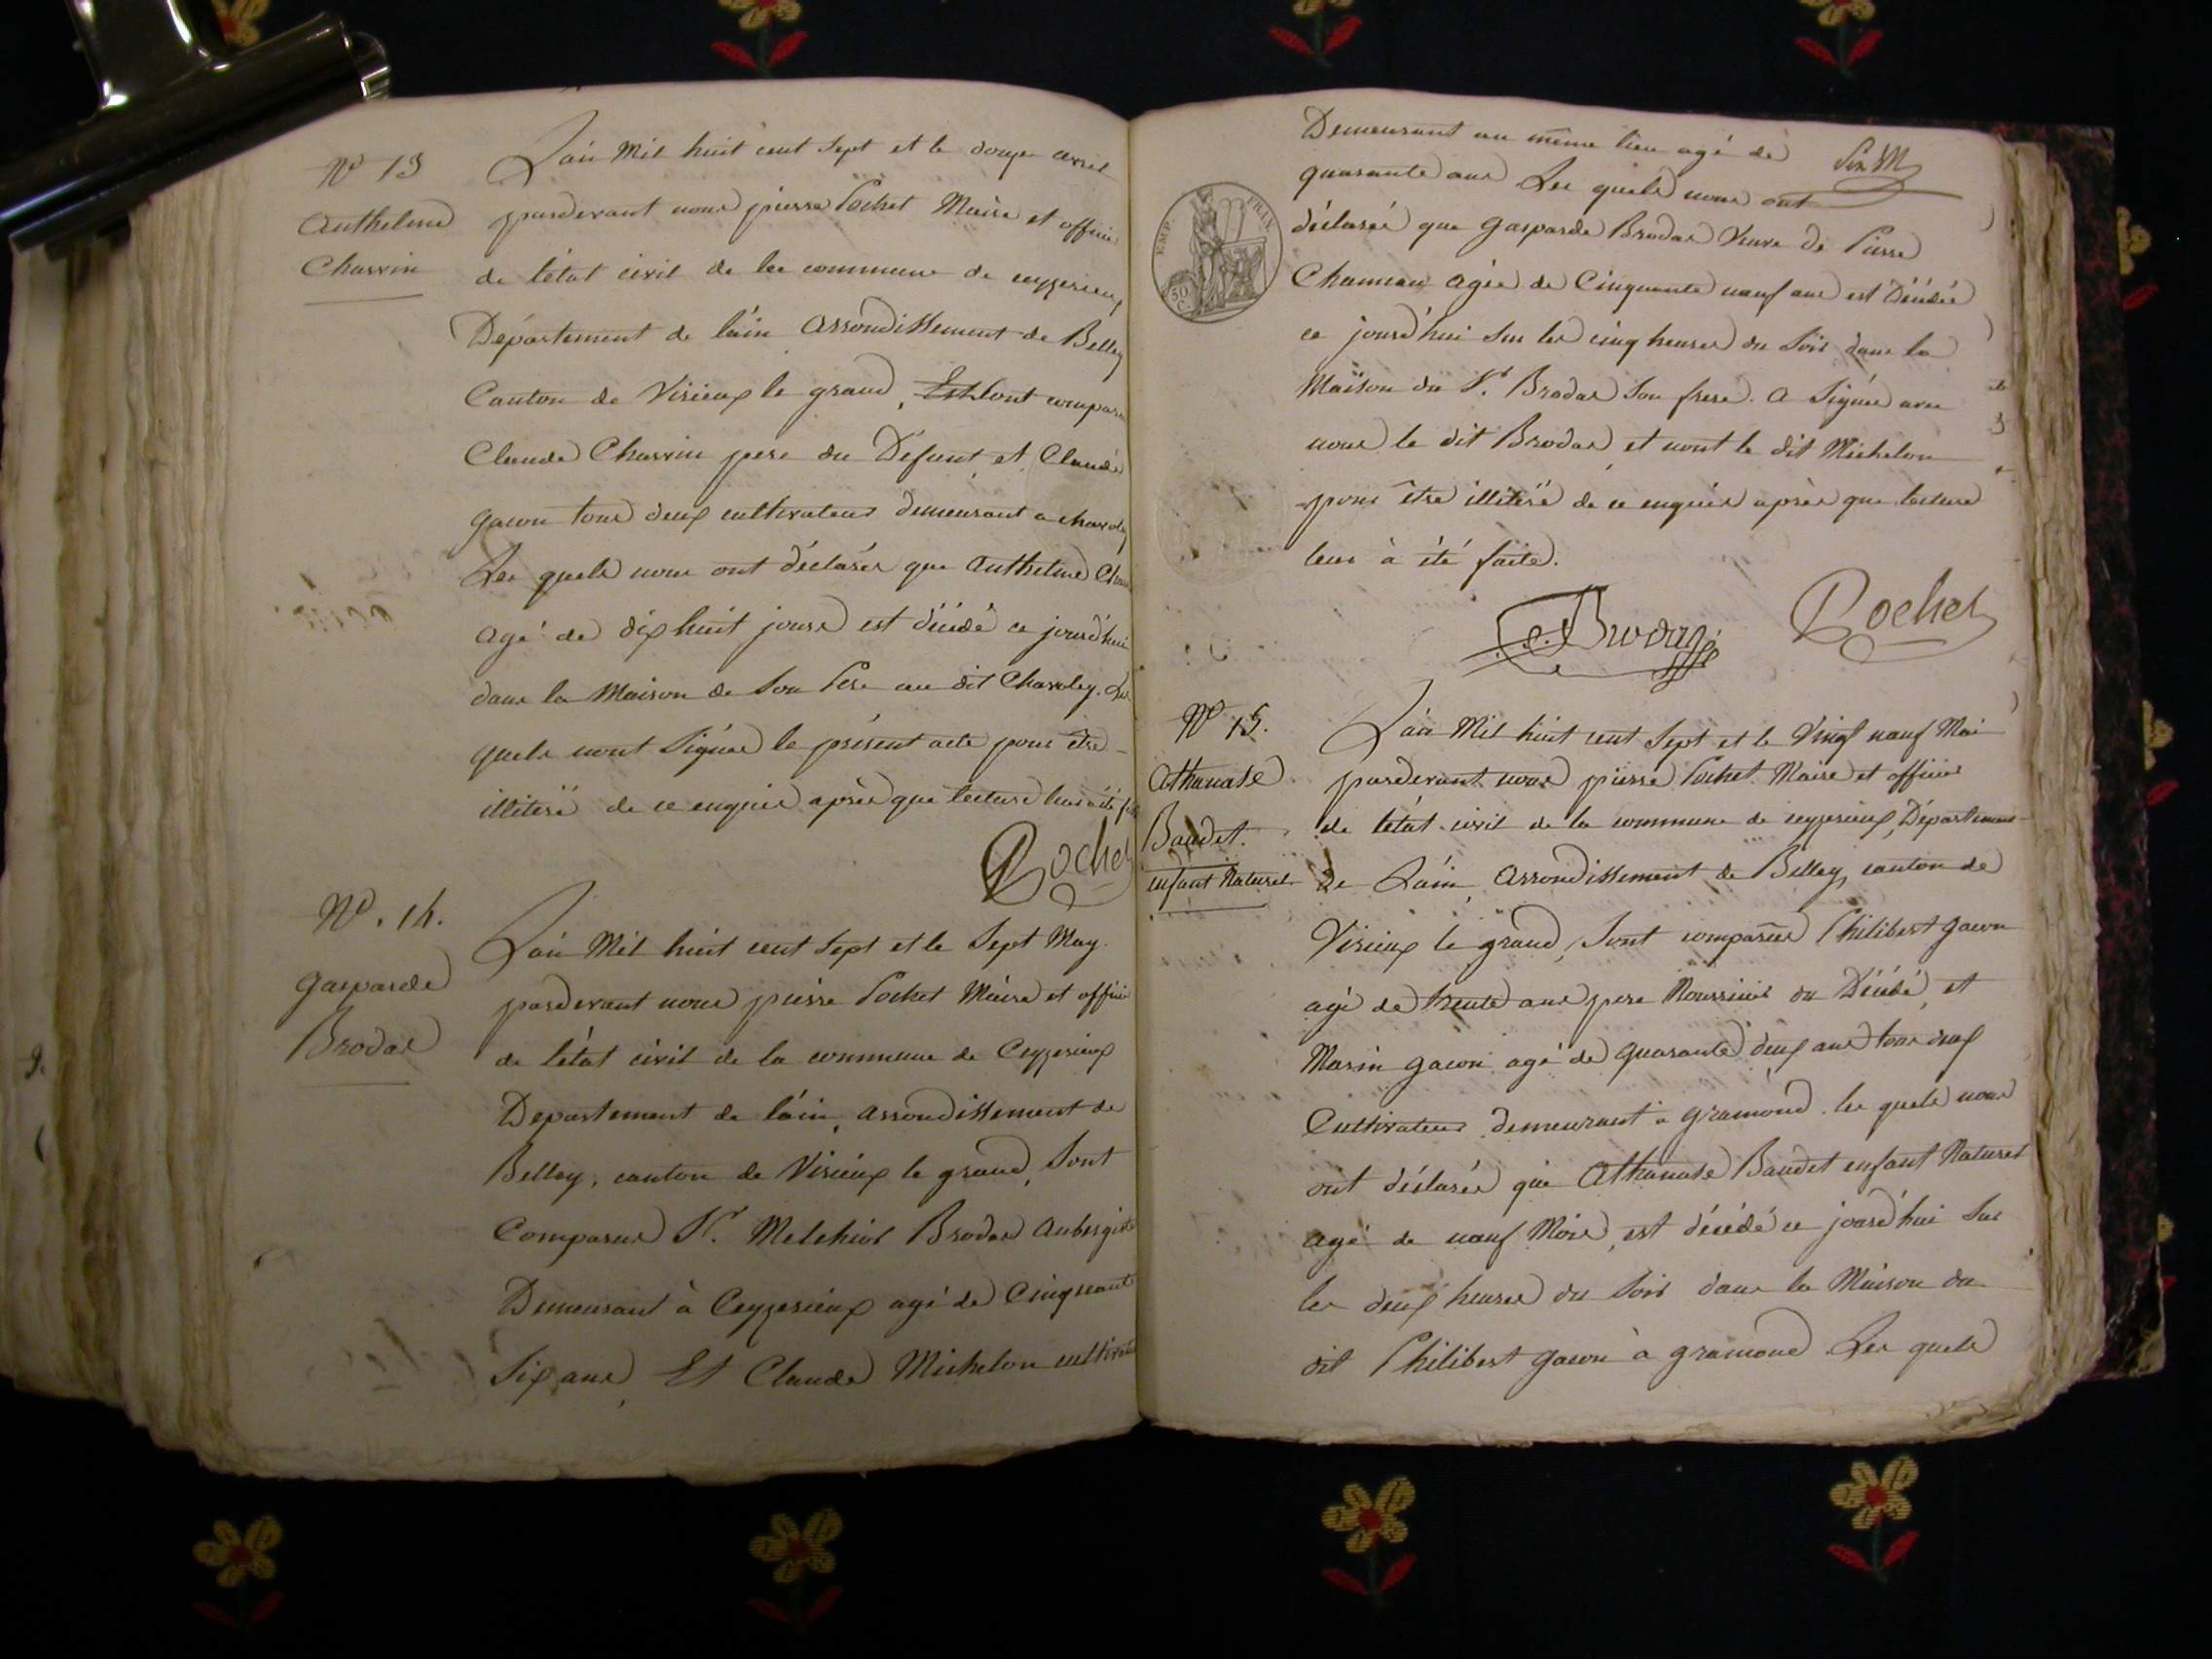 N° 13
Anthelme
Charvin
L'ain Mil huit cent Sept et le douze avril
pardevant nous pierre Pochet Maire et officier
de l'état civil de la commune de ceyzerieux
Département de l'ain Arrondissement de Belley
Canton de Virieux le grand, sont comparu
Claude Charvin pere du Défunt et Claude
gacon tous deux cultivateurs demeurant a charoley
Les quels nous ont déclarés que Anthelme
agé de dix huit jours est décédé ce jourd'hui
dans la Maison de Son Pere au dit Charoley. Les
quels nont Signés le présent acte pour être
illiteré de ce enquis après que lecture
Pochet
N°. 14.
gasparde
Brodas
L'ain Mil huit cent Sept et le Sept May.
pardevant nous pierre Pochet Maire et officier
de l'état civil de la commune de Ceyzerieux
Departement de l'ain, arrondissement de
Belley, canton de Virieux le grand, Sont
Comparus Sr. Melchior Brodas Aubergiste
Demeurant à Ceyzerieux agé de Cinquante
Six ans, Et Claude Michelon
Demeurant au même lieu agé de
quarante ans Les quels nous ont
déclarés que gasparde Brodas Veuve de Pierre
agée de Cinquante neuf ans est Décédée
ce jourd'hui Sur les cinq heures du Soir dans la
Maison du Sr. Brodas Son frere. a Signés avec
nous le dit Brodas et nont le dit Michelon
pour être illiteré de ce enquis après que lecture
leur à été faite.
EMP. FRAN.
50 C.
Brodas
Pochet
N° 15.
Athanase
Baudet.
enfant Naturel
L'ain Mil huit cent Sept et le Vingt neuf Mai
pardevant nous pierre Pochet Maire et officier
de l'état civil de la commune de ceyzerieux, Département
de L'ain, Arrondissement de Belley, canton de
Virieux le grand, Sont comparus Philibert gacon
agé de trente ans pere Nourricier du Décédé, et
Marin gacon agé de quarante deux ans tous deux
Cultivateurs demeurant à gramond. les quels nous
ont déclarés que Athanase Baudet enfant Naturel
agé de neuf Mois, est décédé ce jourd'hui Sur
les deux heures du Soir dans la Maison du
dit Philibert gacon à gramond Les quels